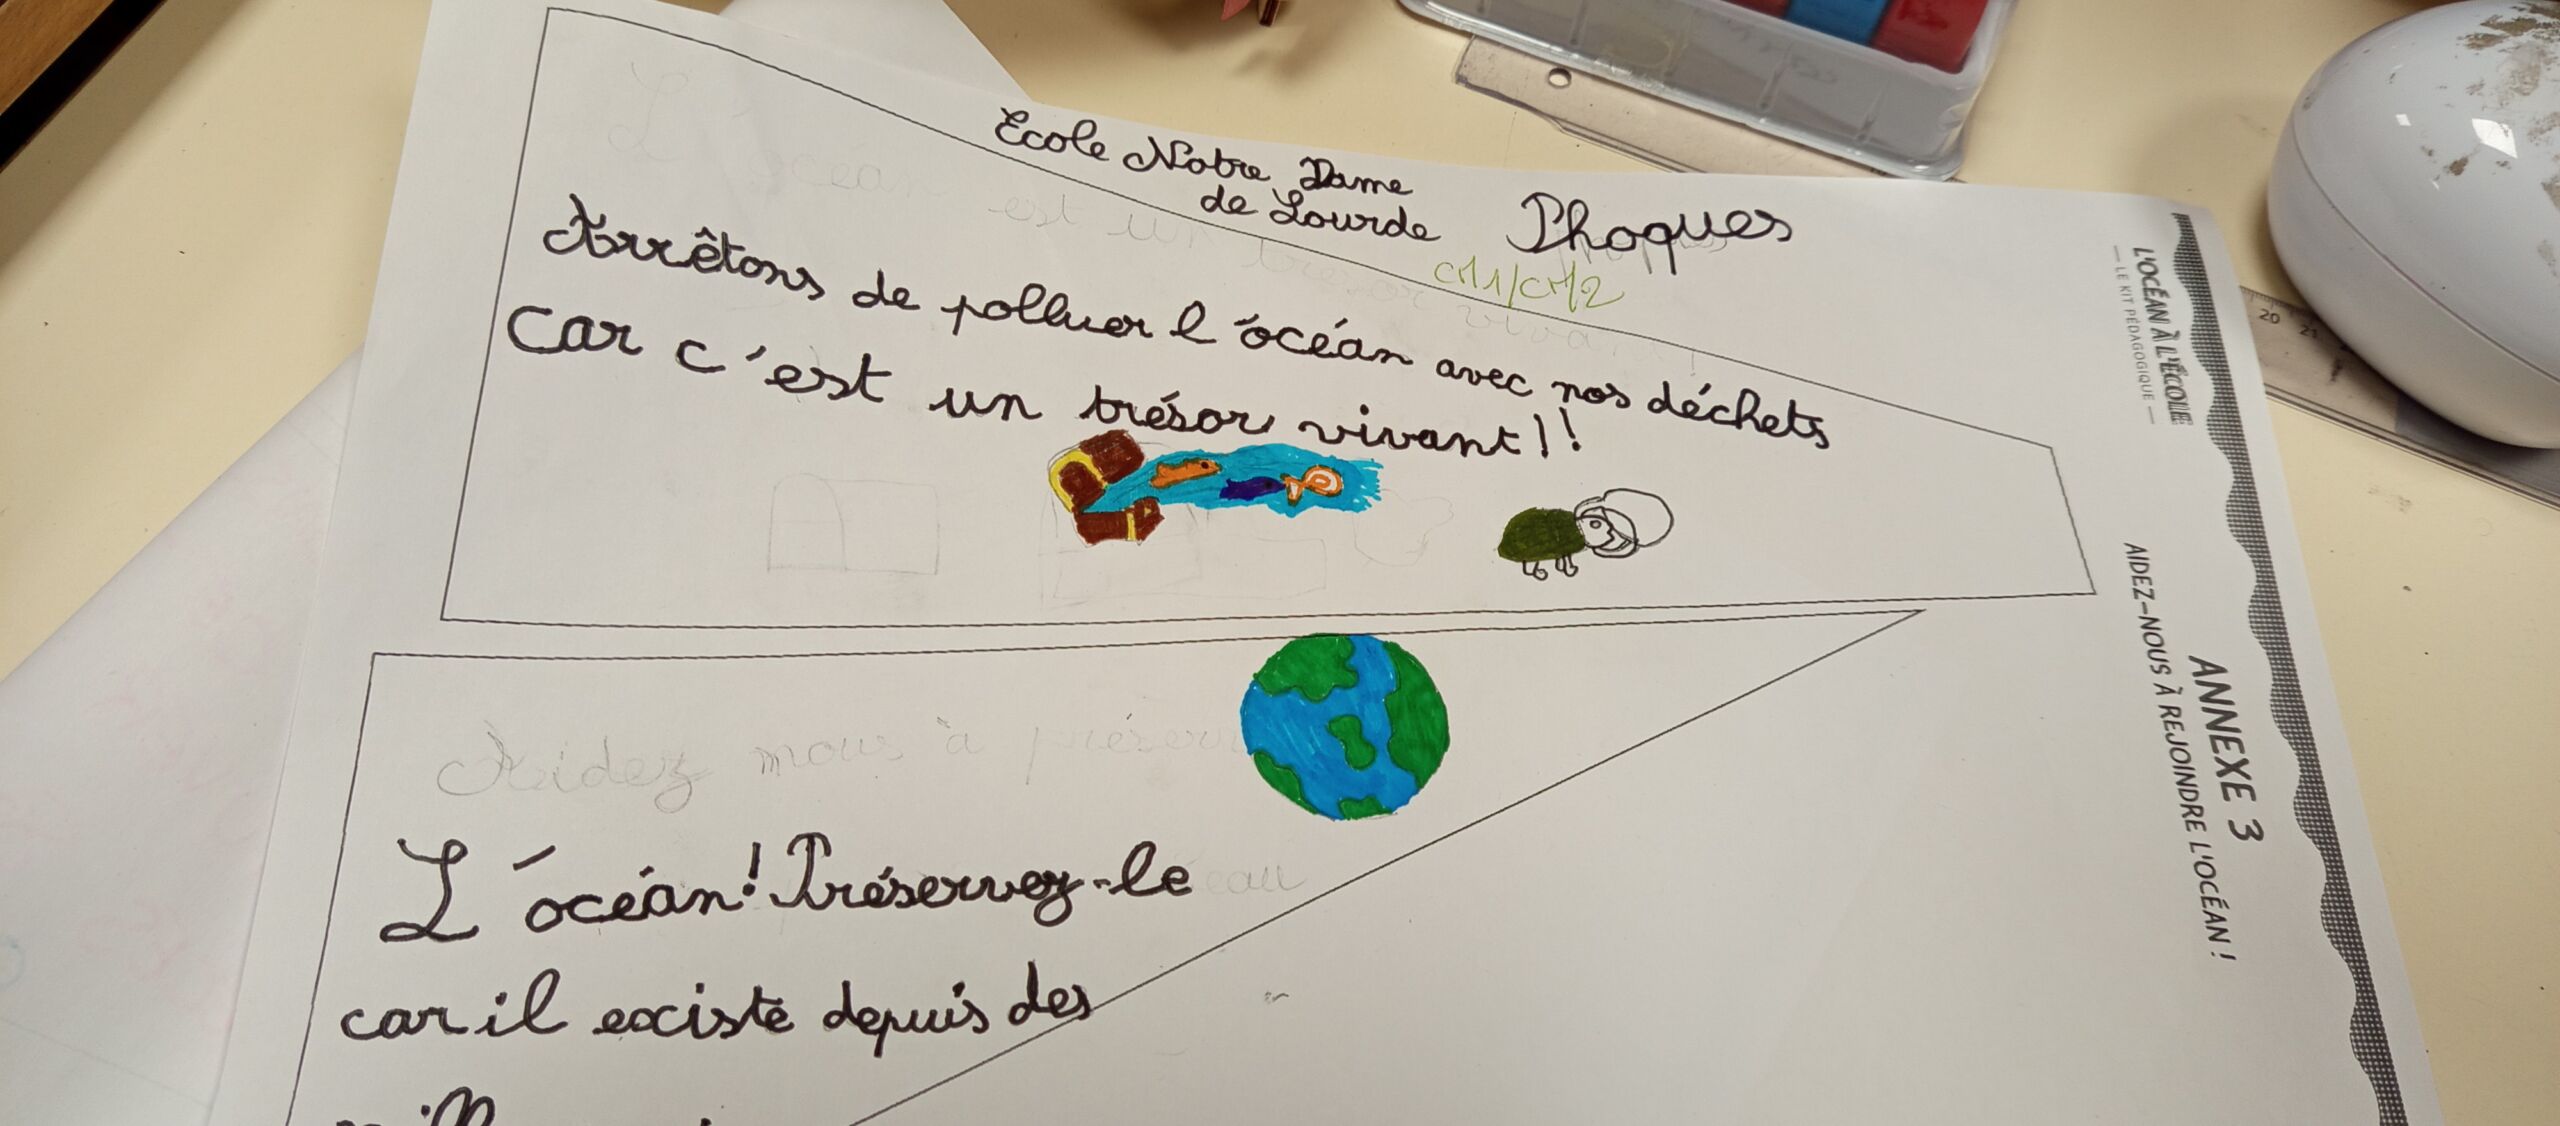 Ecole Notre Dame
de Lourde
Phoques
CM1/CM2
L'océan est un trésor vivant !
Arrêtons de polluer l'océan avec nos déchets
Car c'est un trésor vivant !!
Aidez nous à préserv
L'océan! Préservez-le
eau
car il existe depuis des
L'OCÉAN À L'ÉCOLE
— LE KIT PÉDAGOGIQUE —
ANNEXE 3
AIDEZ-NOUS À REJOINDRE L'OCÉAN !
20 21